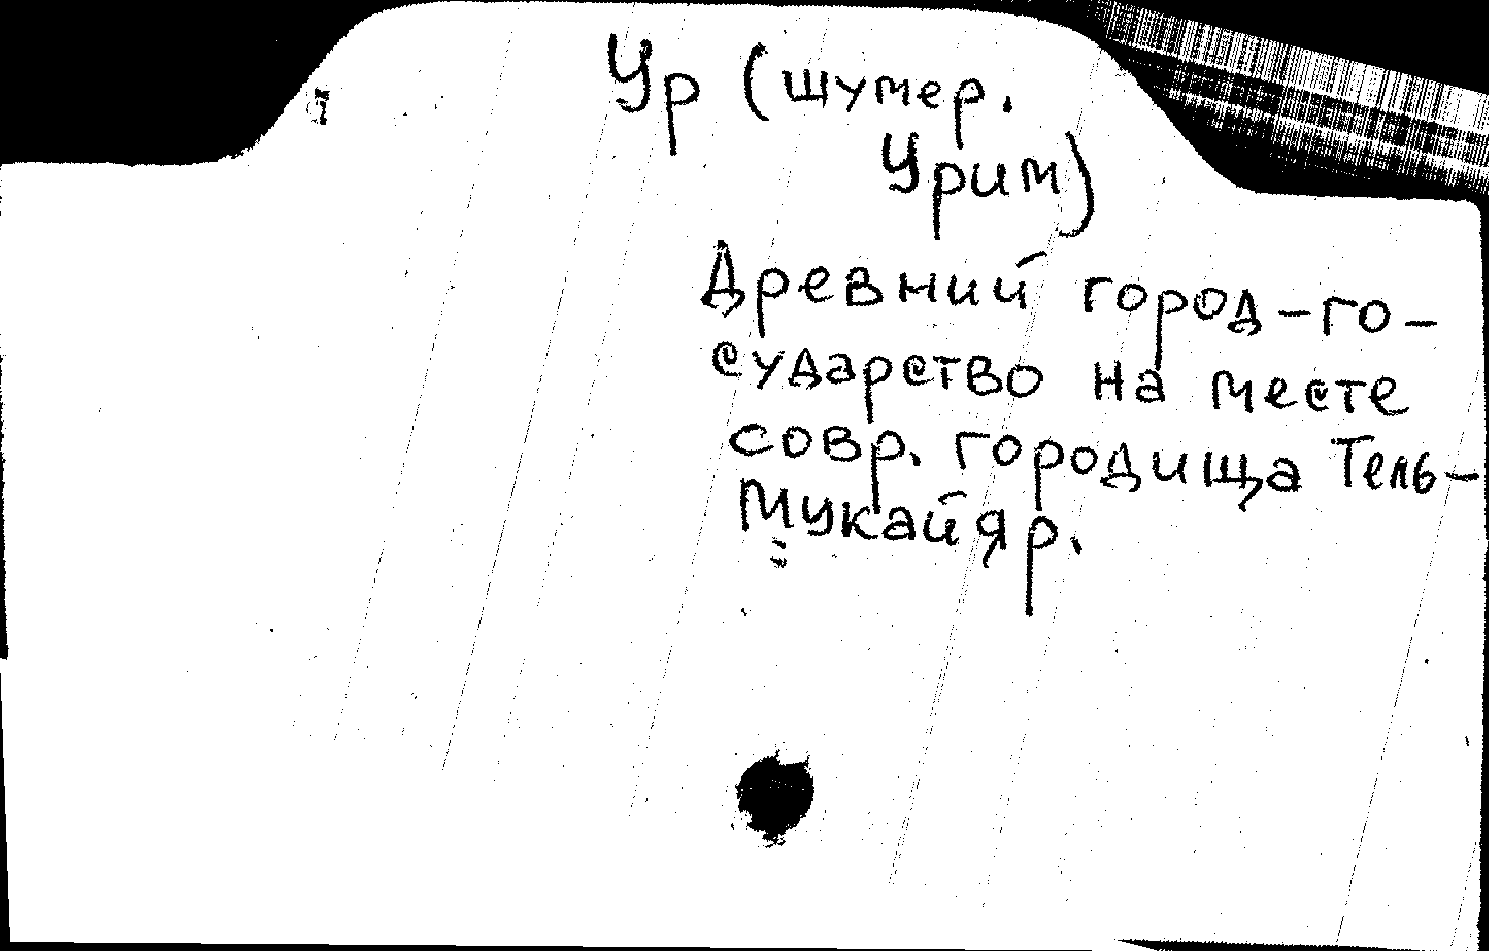 Ур (шумер.
Урим)
Древний город-го-
сударство на месте
совр. городища Тель-
Мукайяр.